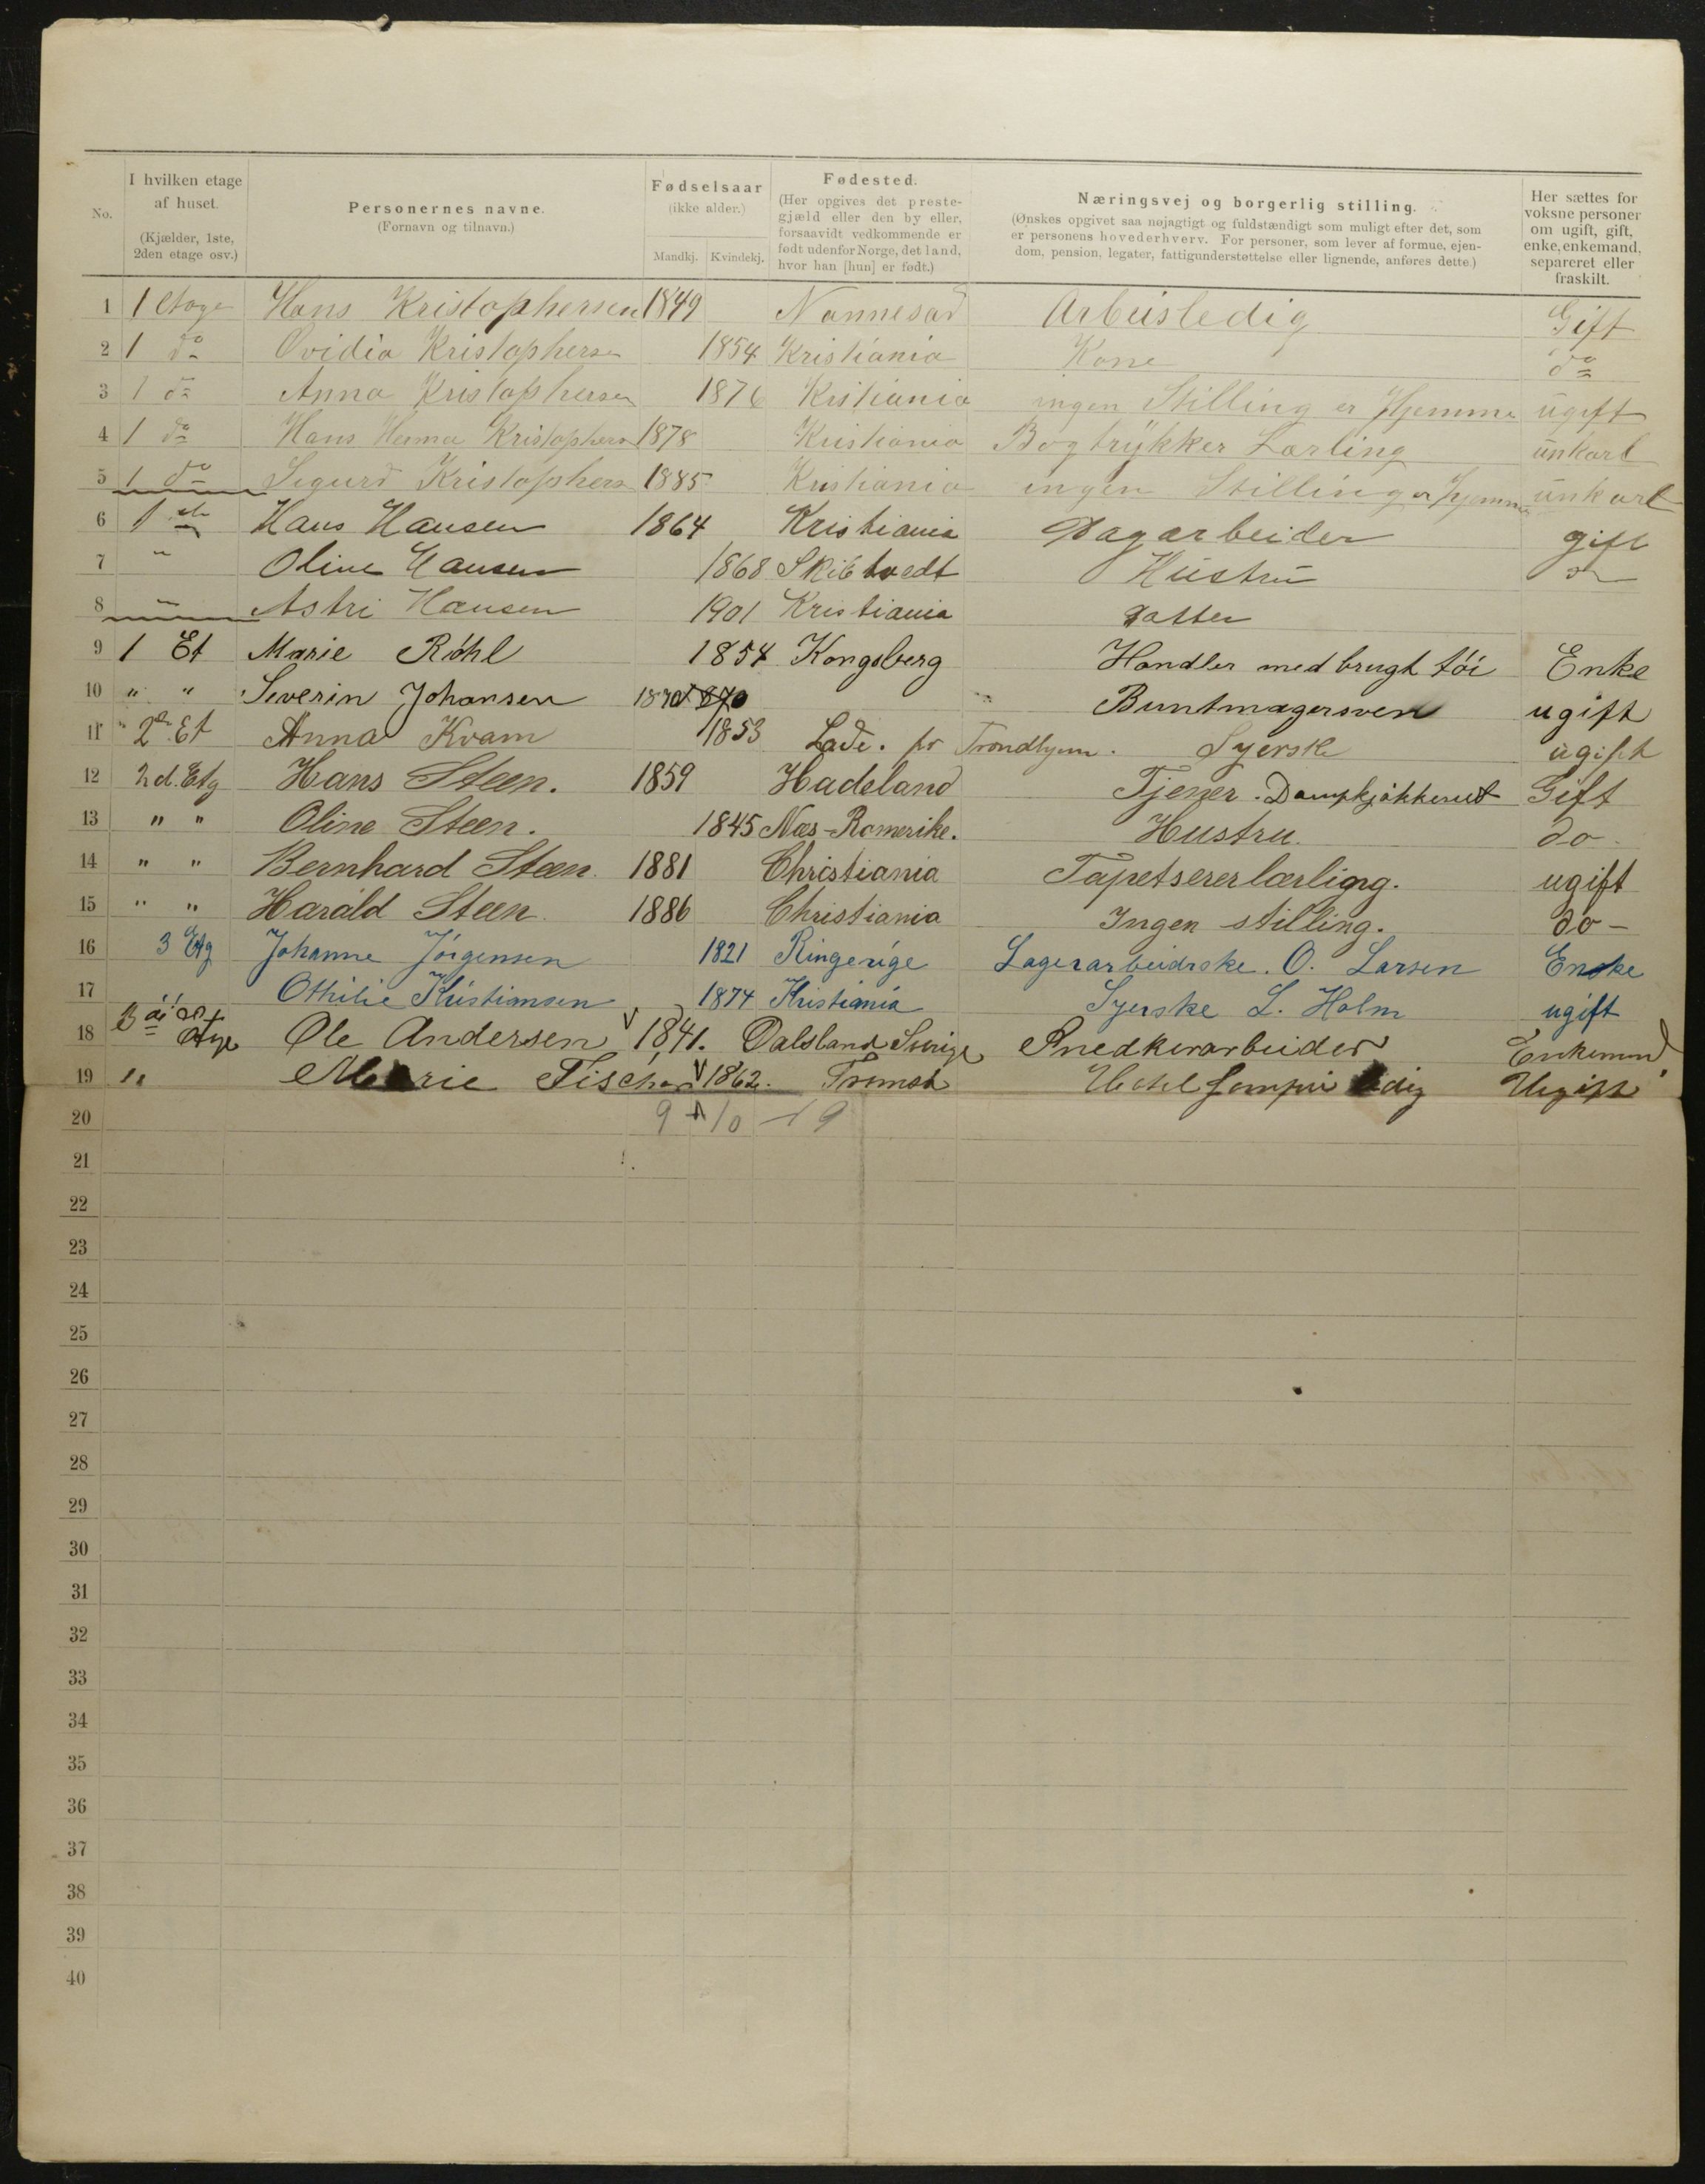 No.
I hvilken etage af huset.
(Kjælder, 1ste, 2den etage osv.)
Personernes navne.
(Fornavn og tilnavn.)
Fødselsaar
(ikke alder.)
Mandkj. Kvindekj.
Fødested.
(Her opgives det preste-
gjæld eller den by eller,
forsaavidt vedkommende er
født udenfor Norge, det land,
hvor han [hun] er født.)
Næringsvej og borgerlig stilling.
(Ønskes opgivet saa nøjagtigt og fuldstændigt som muligt efter det, som
er personens hovederhverv. For personer, som lever af formue, ejen-
dom, pension, legater, fattigunderstøttelse eller lignende, anføres dette.)
Her sættes for
voksne personer
om ugift, gift,
enke, enkemand,
separeret eller
fraskilt.
1 1 Etage Hans Kristophersen 1849 Nannesad Arbeisledig Gift
2 1 do Ovidia Kristophersen 1854 Kristiania Kone do
3 1 do Anna Kristophersen 1876 Kristiania ingen Stilling er Hjemme ugift
4 1 do Hans Herma Kristophers 1878 Kristiania Bogtrykker Lærling unkarl
5 1 do Sigurd Kristophers 1885 Kristiania ingen Stilling er Hjemme unkarl
6 1 Hans Hansen 1864 Kristiania Dagarbeider gift
7 " Oline Hansen 1868 Skibtvedt Hustru do
8 " Astri Hansen 1901 Kristiania datter
9 1 Et Marie Röhl 1854 Kongsberg Handler med brugt töi Enke
10 " " Severin Johansen 1870 Buntmagersven ugift
11 " 2den Et Anna Kvam 1853 Lade. pr Trondhjem. Syerske ugift
12 2d. Etg Hans Steen. 1859 Hadeland Tjener. Dampkjøkkenet Gift
13 " " Oline Steen. 1845 Næs-Romerike. Hustru. do.
14 " " Bernhard Steen. 1881 Christiania Tapetsererlærling. ugift
15 " " Harald Steen. 1886 Christiania Ingen stilling. do -
16 3 Etg Johanne Jörgensen 1821 Ringerige Lagerarbeidrske. O. Larsen Enke
17 " " Othilie Kristiansen 1874 Kristiania Syerske L. Holm ugift
18 Etage Ole Andersen 1841. Dalsland Sverige Snedkerarbeider Enkemand
19 " Marie Fischer 1862. Tromsö Hotel ledig Ugift
20 9 + 10 - 19
21
22
23
24
25
26
27
28
29
30
31
32
33
34
35
36
37
38
39
40